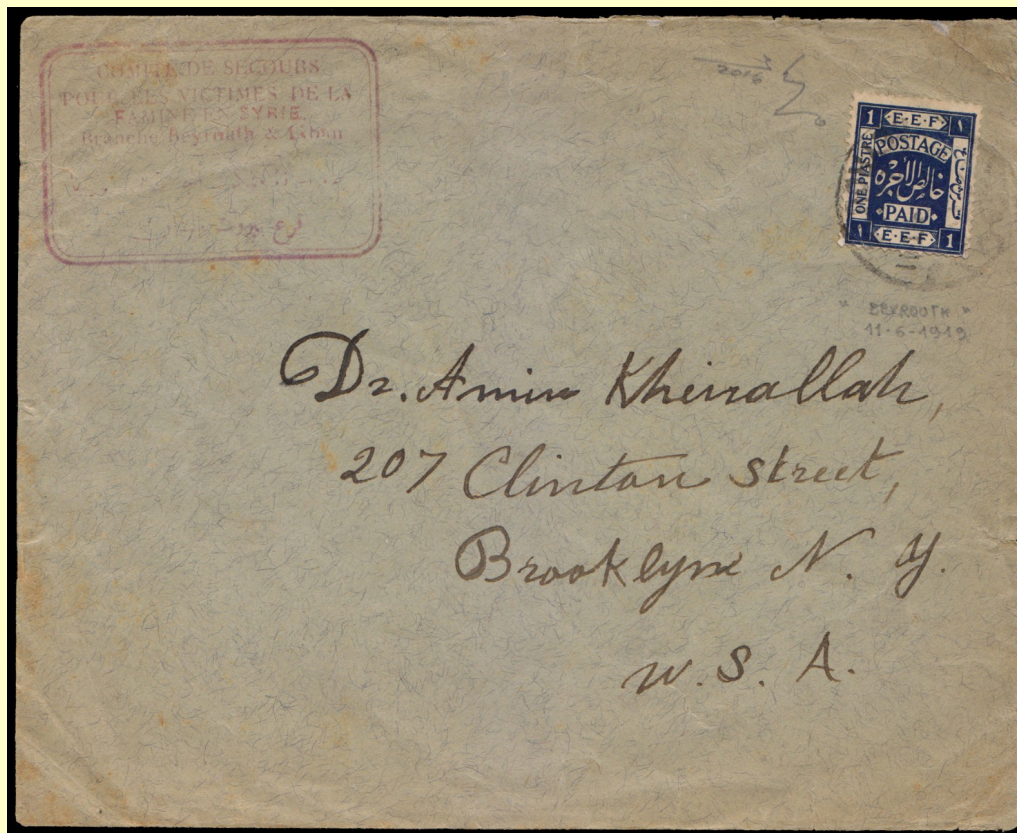 COMITE DE SECOURS
POUR LES VICTIMES DE LA
FAMINE EN SYRIE.
Branche Beyrouth & Liban
فرع
2016
1 E·E·F ١
POSTAGE
ONE PIASTRE
خالص الأجرة
PAID
١ E·E·F 1
" BEYROUTH "
11-6-1919
Dr. Amin Kheirallah,
207 Clinton Street,
Brooklyn N. Y.
U. S. A.